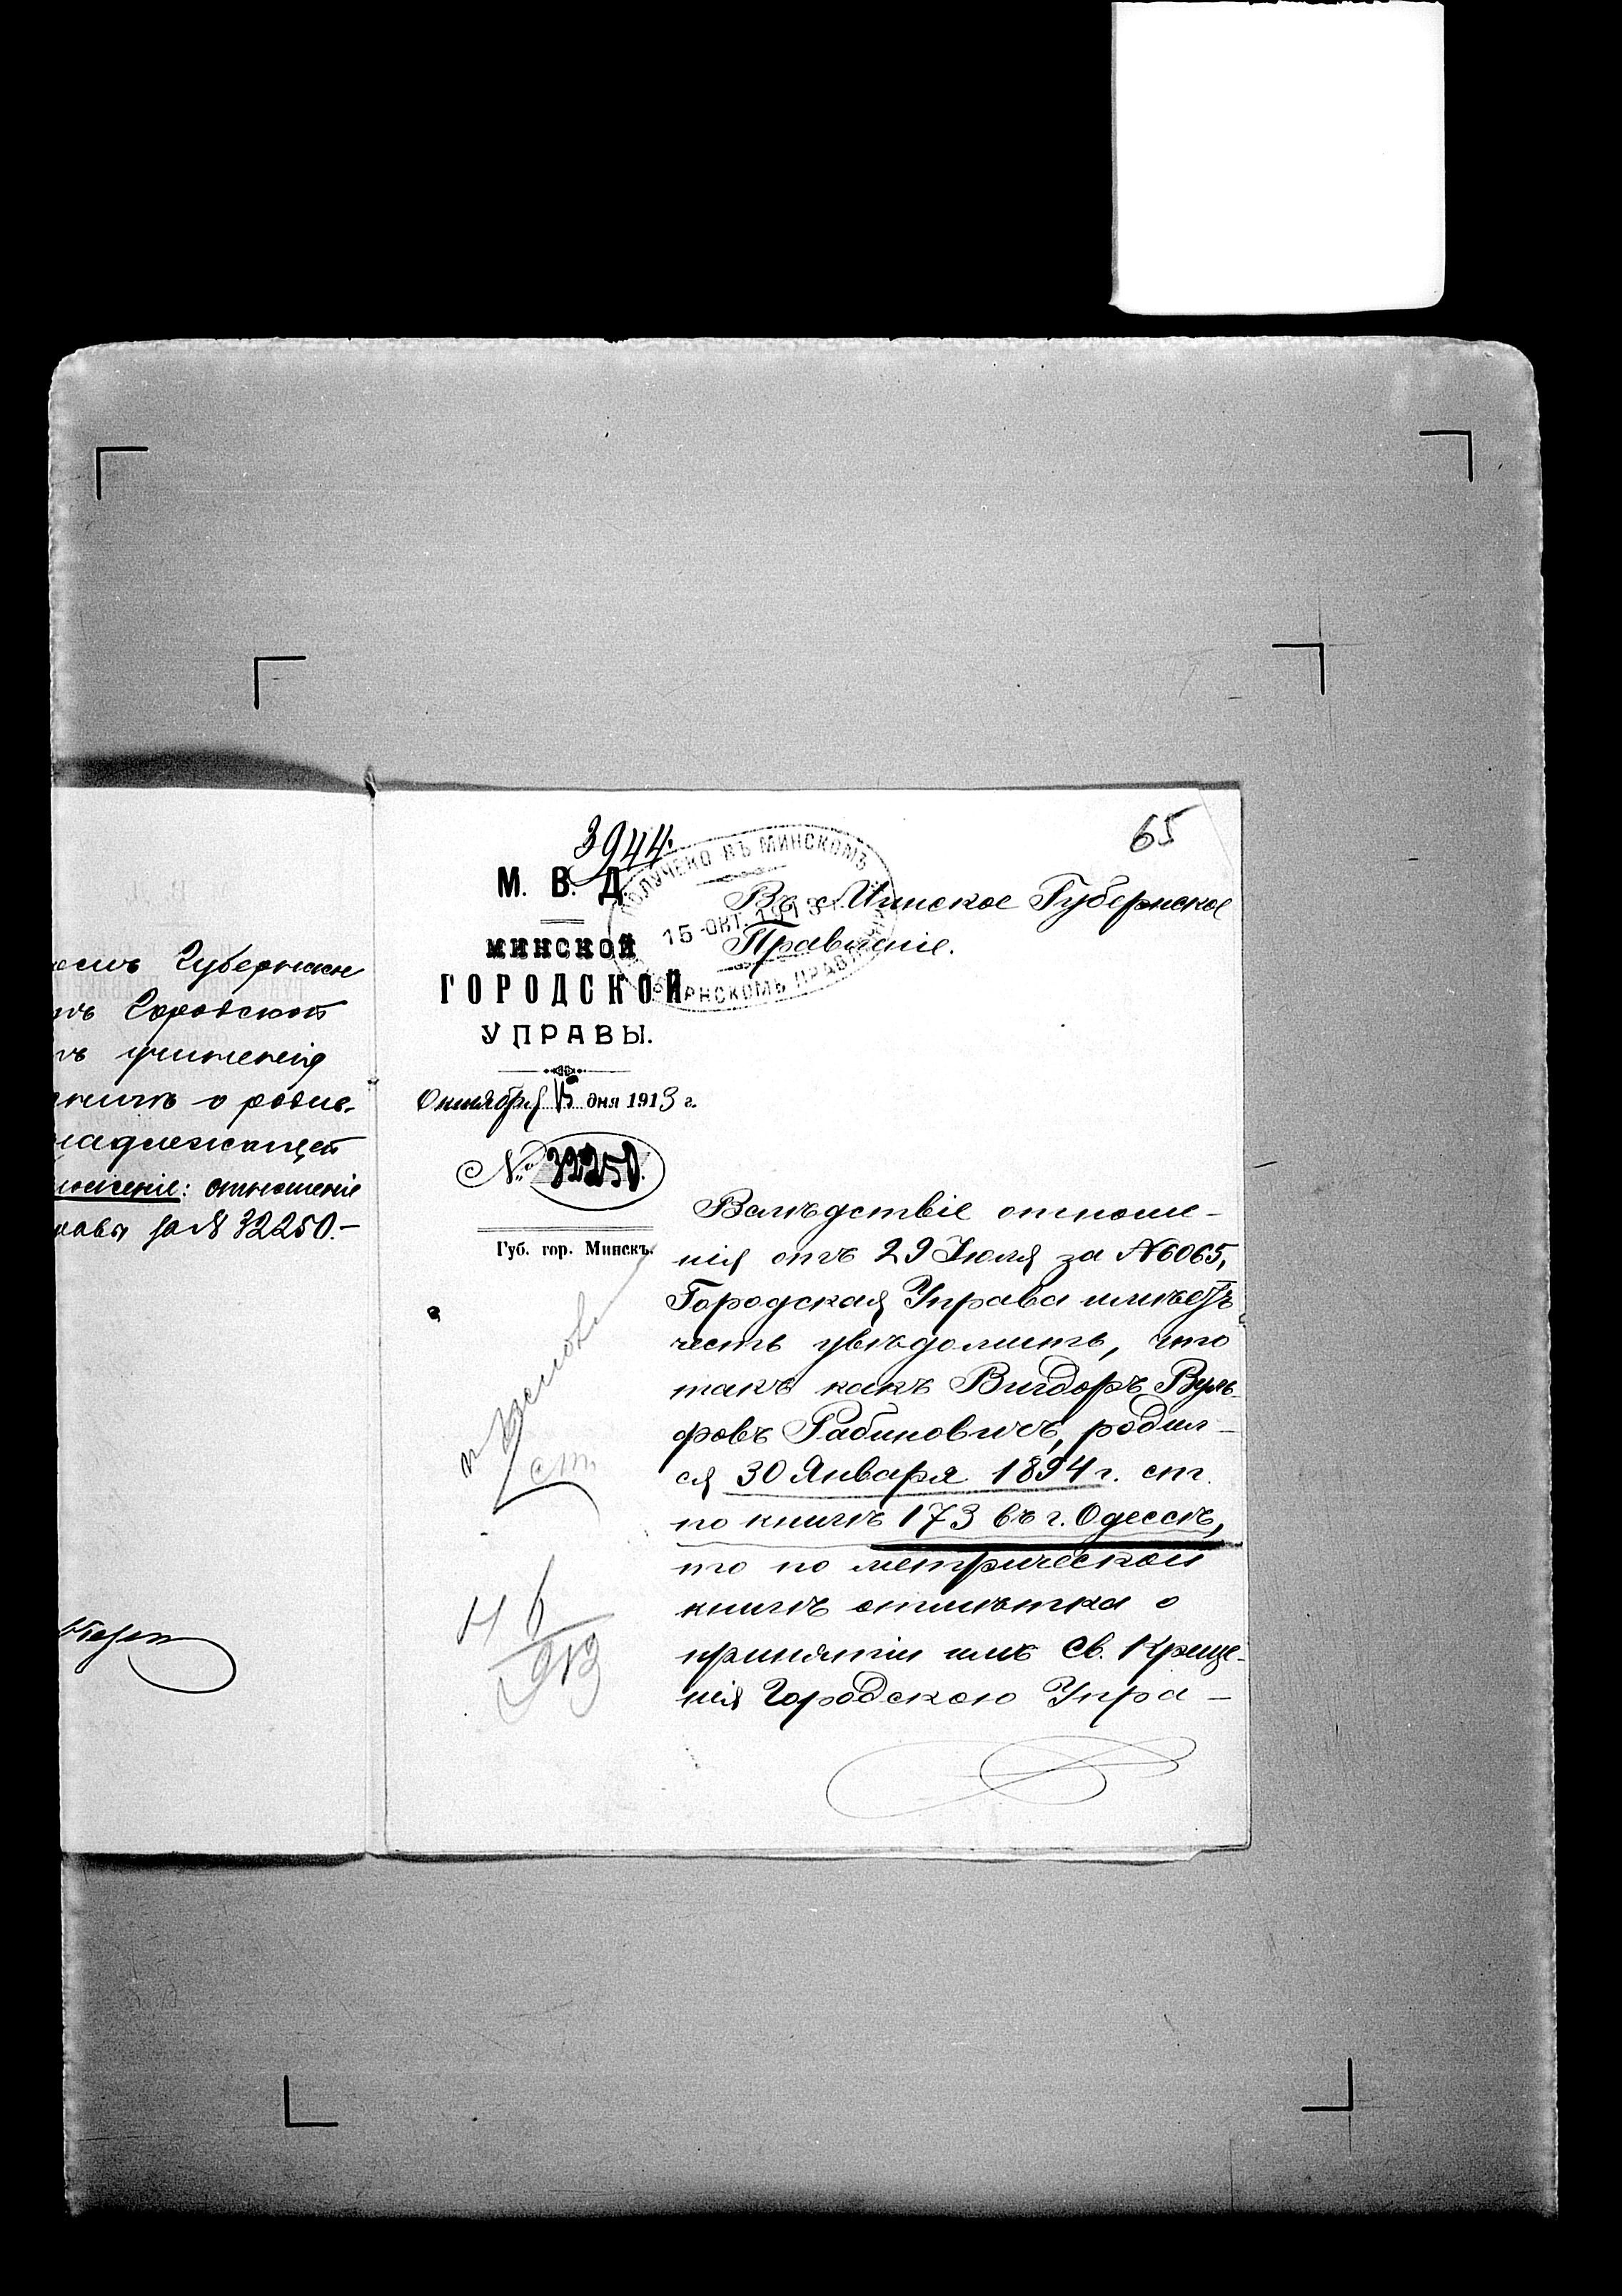 Губернски
Городской
учиненія
о родив-
надлежащей
ложеніе: отношеніе
за № 32250.-
65
3944.
М. В. Д.
МИНСКОЙ
ГОРОДСКОЙ
УПРАВЫ.
Октября 15 дня 1913 г.
№ 32250.
Губ. гор. Минскъ.
ПОЛУЧЕНО ВЪ МИНСКОМЪ
15-ОКТ. 1913
ПРАВЛЕНІИ
Въ Минское Губернское
Правленіе.
Вслѣдствіе отноше-
нія отъ 29 Іюля за № 6065,
Городская Управа имѣетъ
честь увѣдомить, что
такъ какъ Вигдоръ Вуль-
фовъ Рабиновичъ, родил-
ся 30 Января 1894 г. ст.
по книгѣ 173 въ г. Одессѣ,
то по метрической
книгѣ отмѣтка о
принятіи имъ Св. Креще-
нія Городскою Упра-